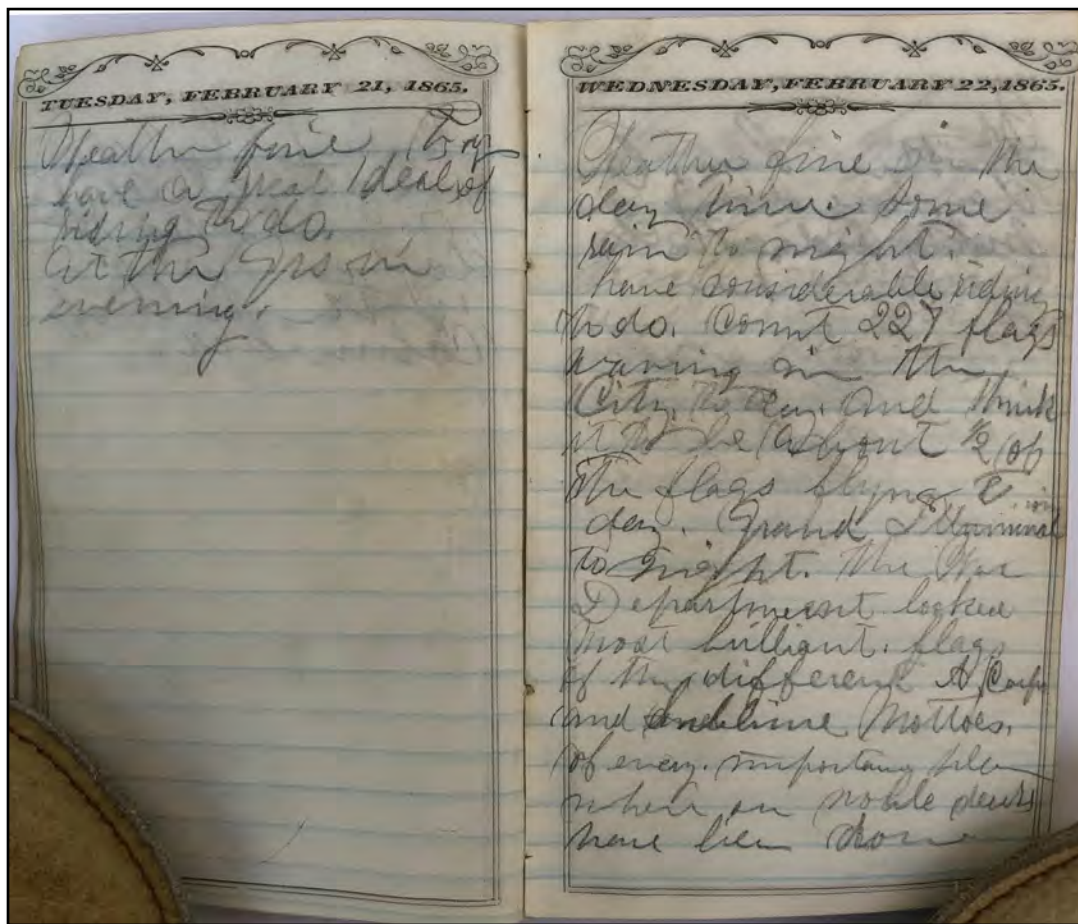 TUESDAY, FEBRUARY 21, 1865.
Weather fine. Boys
have a great deal of
riding to do.
at the in
evening.
WEDNESDAY, FEBRUARY 22, 1865.
Weather fine in the
day time. Some
rain to night.
have considerable riding
to do. Count 227 flags
waving in the
City. to day. and think
it to be about 1/2 of
the flags flying to
day. Grand Illuminat ion
to night. The War
Department looked
most brilliant. flags
of the different A. Corps
and sublime Mottoes.
of every. important
where in noble deeds
have been done